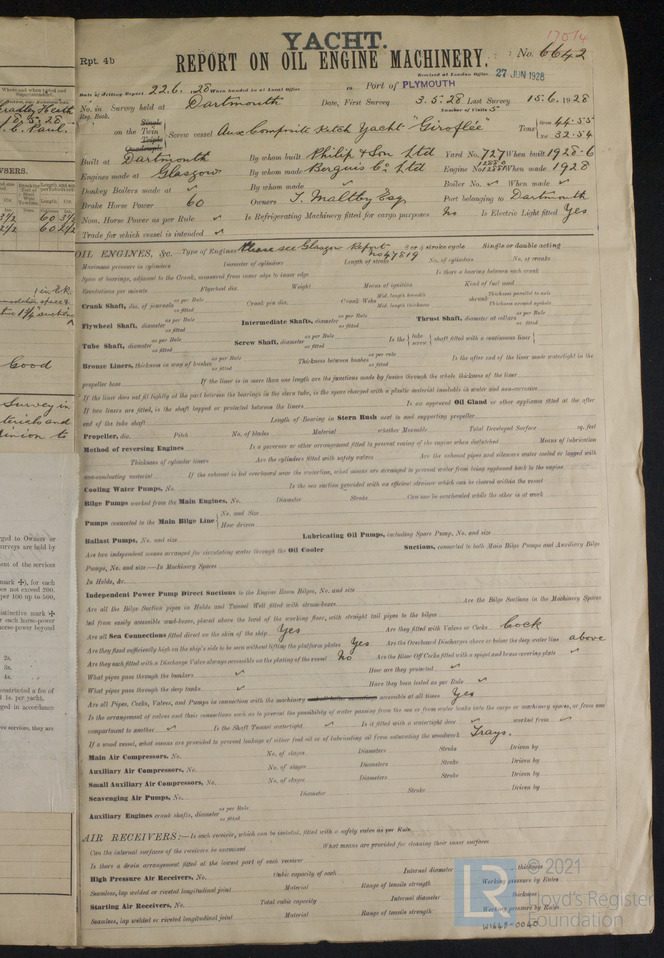 17014
YACHT.
Rpt. 4b
REPORT ON OIL ENGINE MACHINERY.
No. 6642
Received at London Office 27 JUN 1928
Date of writing Report 22.6.1928 When handed in at Local Office Port of PLYMOUTH
No. in Survey held at Dartmouth Date, First Survey 3.5.28 Last Survey 15.6.1928
Reg. Book. Number of Visits 5
on the Single Twin Triple Quadruple Screw vessel Aux Composite Ketch Yacht "Giroflée" Tons Gross 44.55 Net 32.54
Built at Dartmouth By whom built Philip & Son Ltd Yard No. 727 When built 1928-6
Engines made at Glasgow By whom made Bergius Co. Ltd Engine No. When made 1928
Donkey Boilers made at ✓ By whom made ✓ Boiler No. ✓ When made ✓
Brake Horse Power 60 Owners T. Maltby Esq. Port belonging to Dartmouth
Nom. Horse Power as per Rule ✓ Is Refrigerating Machinery fitted for cargo purposes No Is Electric Light fitted Yes
Trade for which vessel is intended ✓
OIL ENGINES, &c.—Type of Engines Please see Glasgow Report No 47519 2 or 4 stroke cycle Single or double acting
Maximum pressure in cylinders Diameter of cylinders Length of stroke No. of cylinders No. of cranks
Span of bearings, adjacent to the Crank, measured from inner edge to inner edge Is there a bearing between each crank
Revolutions per minute Flywheel dia. Weight Means of ignition Kind of fuel used
Crank Shaft, dia. of journals as per Rule as fitted Crank pin dia. Crank Webs Mid. length breadth Mid. length thickness shrunk Thickness parallel to axis Thickness around eyehole
Flywheel Shaft, diameter as per Rule as fitted Intermediate Shafts, diameter as per Rule as fitted Thrust Shaft, diameter at collars as per Rule as fitted
Tube Shaft, diameter as per Rule as fitted Screw Shaft, diameter as per Rule as fitted Is the tube screw shaft fitted with a continuous liner
Bronze Liners, thickness in way of bushes as per Rule as fitted Thickness between bushes as per rule as fitted Is the after end of the liner made watertight in the
propeller boss If the liner is in more than one length are the junctions made by fusion through the whole thickness of the liner
If the liner does not fit tightly at the part between the bearings in the stern tube, is the space charged with a plastic material insoluble in water and non-corrosive
If two liners are fitted, is the shaft lapped or protected between the liners Is an approved Oil Gland or other appliance fitted at the after
end of the tube shaft Length of Bearing in Stern Bush next to and supporting propeller
Propeller, dia. Pitch No. of blades Material whether Moveable Total Developed Surface sq. feet
Method of reversing Engines Is a governor or other arrangement fitted to prevent racing of the engine when declutched Means of lubrication
Thickness of cylinder liners Are the cylinders fitted with safety valves Are the exhaust pipes and silencers water cooled or lagged with
non-conducting material If the exhaust is led overboard near the waterline, what means are arranged to prevent water from being syphoned back to the engine
Cooling Water Pumps, No. Is the sea suction provided with an efficient strainer which can be cleared within the vessel
Bilge Pumps worked from the Main Engines, No. Diameter Stroke Can one be overhauled while the other is at work
Pumps connected to the Main Bilge Line No. and Size
How driven
Ballast Pumps, No. and size Lubricating Oil Pumps, including Spare Pump, No. and size
Are two independent means arranged for circulating water through the Oil Cooler Suctions, connected to both Main Bilge Pumps and Auxiliary Bilge
Pumps, No. and size:—In Machinery Spaces
In Holds, &c.
Independent Power Pump Direct Suctions to the Engine Room Bilges, No. and size
Are all the Bilge Suction pipes in Holds and Tunnel Well fitted with strum-boxes Are the Bilge Suctions in the Machinery Spaces
led from easily accessible mud-boxes, placed above the level of the working floor, with straight tail pipes to the bilges
Are all Sea Connections fitted direct on the skin of the ship Yes Are they fitted with Valves or Cocks Cock
Are they fixed sufficiently high on the ship's side to be seen without lifting the platform plates Yes Are the Overboard Discharges above or below the deep water line above
Are they each fitted with a Discharge Valve always accessible on the plating of the vessel No Are the Blow Off Cocks fitted with a spigot and brass covering plate ✓
What pipes pass through the bunkers ✓ How are they protected ✓
What pipes pass through the deep tanks ✓ Have they been tested as per Rule ✓
Are all Pipes, Cocks, Valves, and Pumps in connection with the machinery accessible at all times Yes
Is the arrangement of valves and their connections such as to prevent the possibility of water passing from the sea or from water tanks into the cargo or machinery spaces, or from one
compartment to another ✓ Is the Shaft Tunnel watertight ✓ Is it fitted with a watertight door ✓ worked from ✓
If a wood vessel, what means are provided to prevent leakage of either fuel oil or of lubricating oil from saturating the woodwork Trays.
Main Air Compressors, No. No. of stages Diameters Stroke Driven by
Auxiliary Air Compressors, No. No. of stages Diameters Stroke Driven by
Small Auxiliary Air Compressors, No. No. of stages Diameters Stroke Driven by
Scavenging Air Pumps, No. Diameter Stroke Driven by
Auxiliary Engines crank shafts, diameter as per Rule as fitted
AIR RECEIVERS:—Is each receiver, which can be isolated, fitted with a safety valve as per Rule
Can the internal surfaces of the receivers be examined What means are provided for cleaning their inner surfaces
Is there a drain arrangement fitted at the lowest part of each receiver
High Pressure Air Receivers, No. Cubic capacity of each Internal diameter thickness
Seamless, lap welded or riveted longitudinal joint Material Range of tensile strength Working pressure by Rules
Starting Air Receivers, No. Total cubic capacity Internal diameter thickness
Seamless, lap welded or riveted longitudinal joint Material Range of tensile strength Working pressure by Rules
© 2021
Lloyd's Register
Foundation
LR
W1648-0040